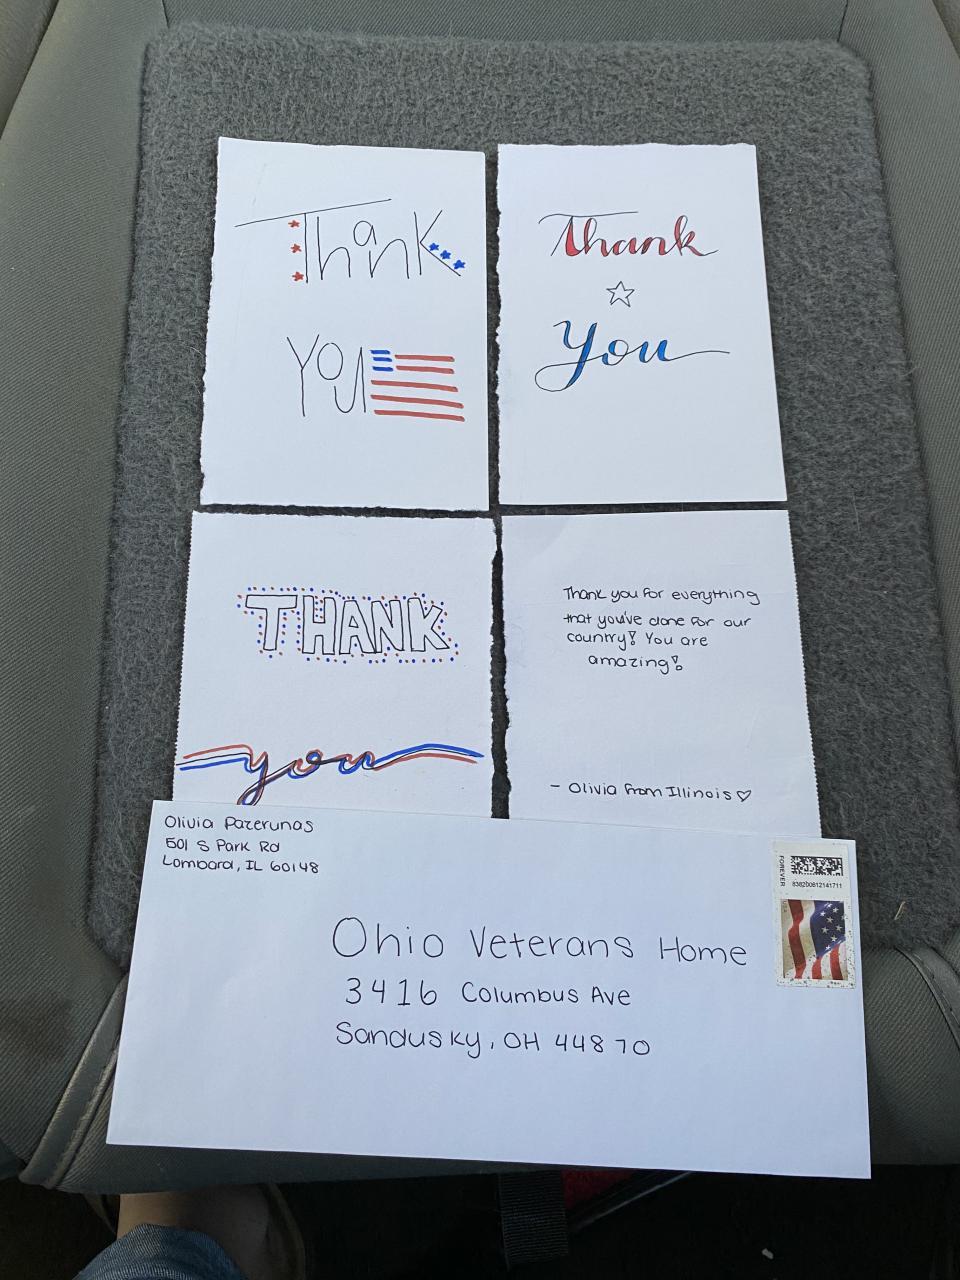 Thank
You
Thank
You
THANK
you
Thank you for everything
that you've done for our
country! You are
amazing!
- Olivia from Illinois♡
Olivia Pazerunas
501 S Park Rd
Lombard, IL 60148
FOREVER
8382D0612141711
Ohio Veterans Home
3416 Columbus Ave
Sandusky, OH 44870